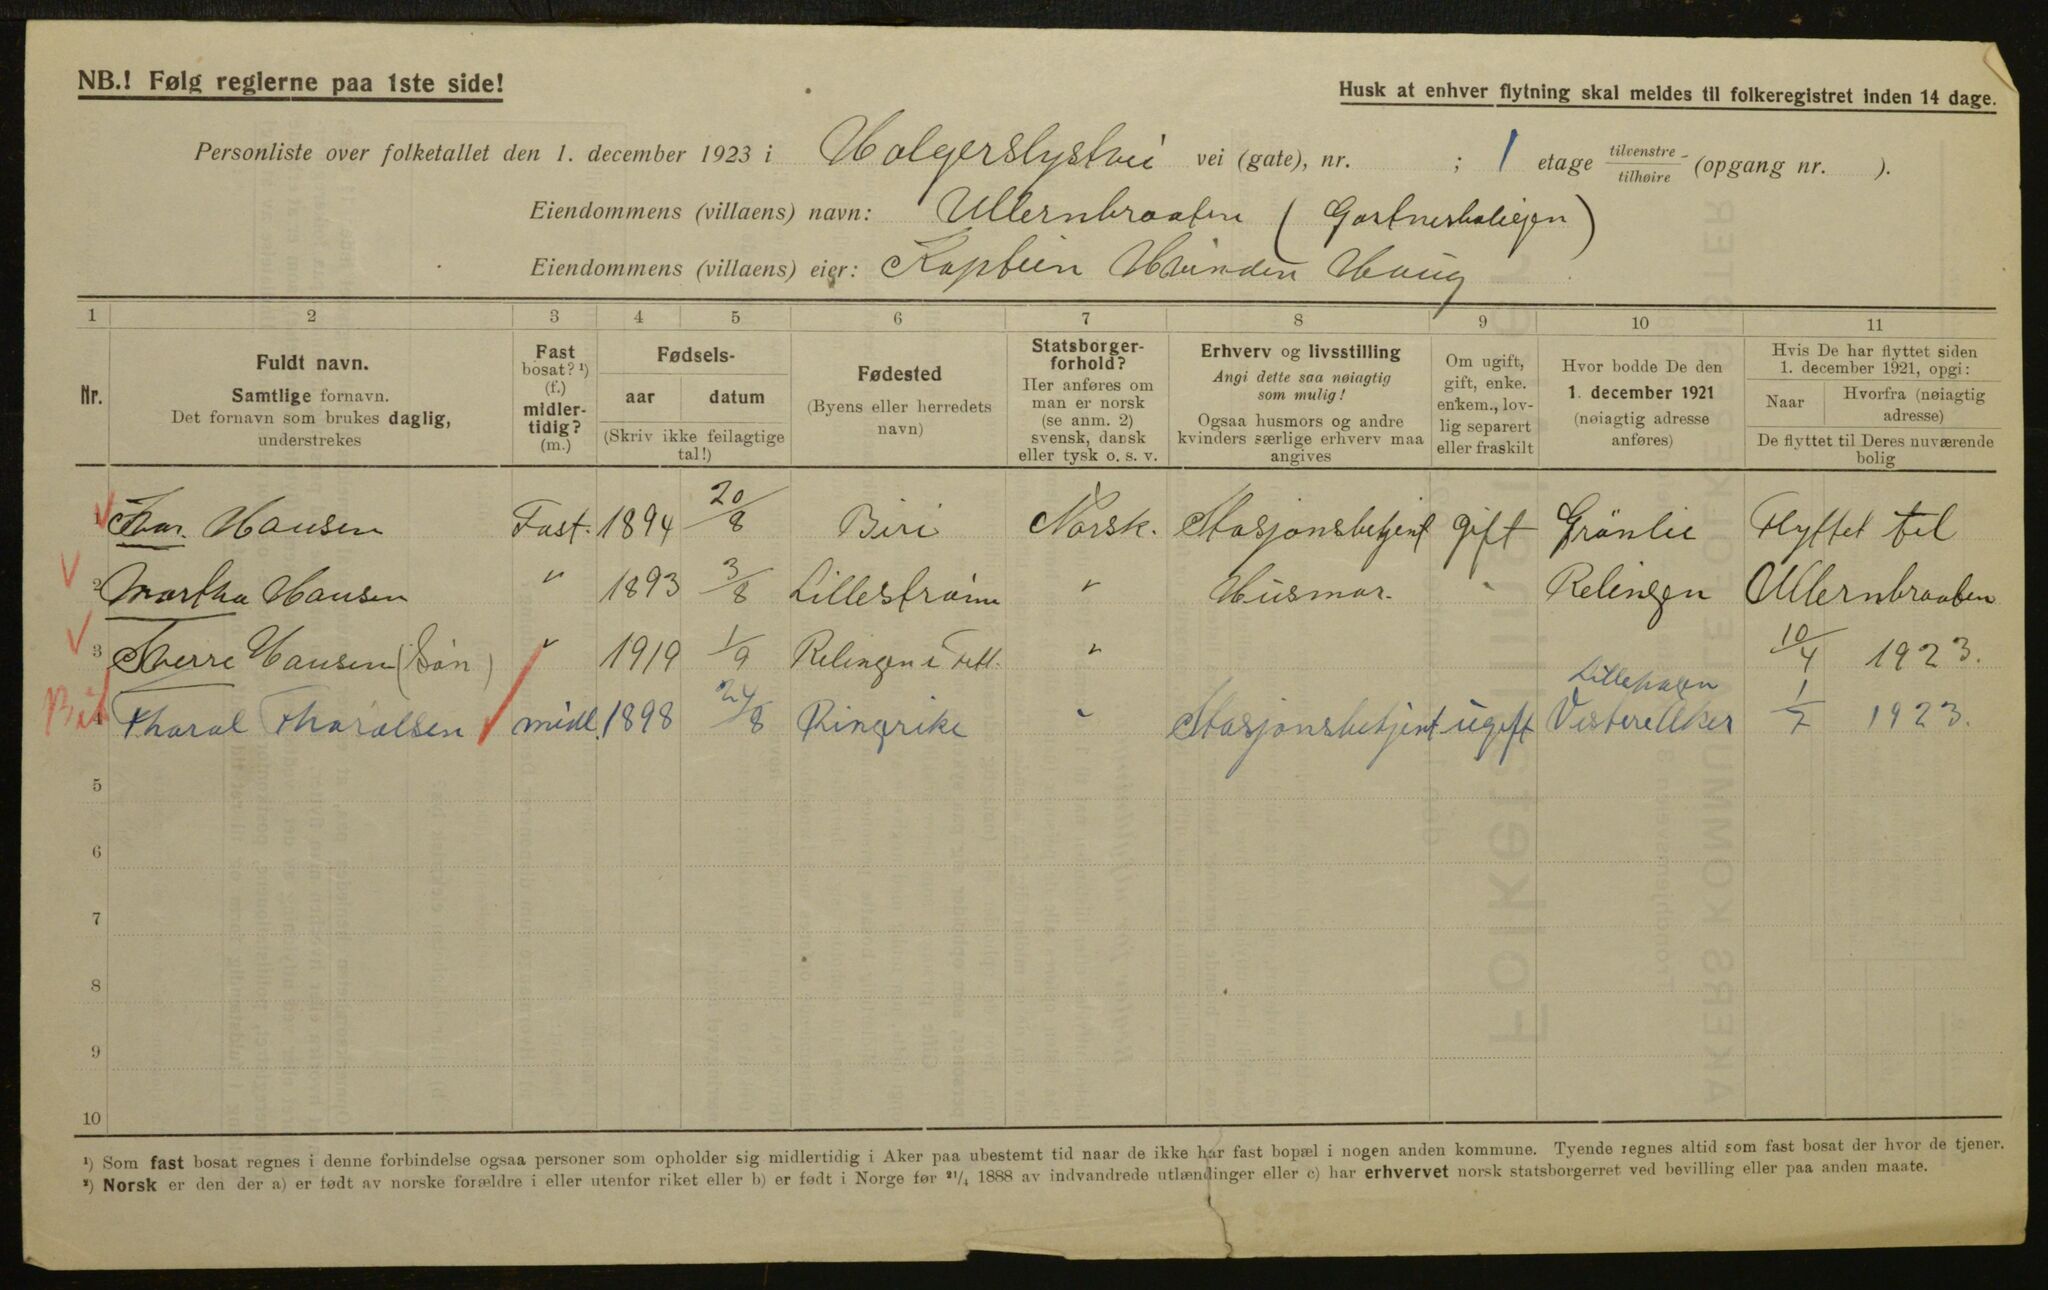 NB.! Følg reglerne paa 1ste side!
Husk at enhver flytning skal meldes til folkeregistret inden 14 dage.
Personliste over folketallet den 1. december 1923 i Holgerslystvei vei (gate), nr. ; 1 etage tilvenstre / tilhøire (opgang nr. ).
Eiendommens (villaens) navn: Ullernbraaten (Gartnerboligen)
Eiendommens (villaens) eier: Kaptein Hvinden Haug
1 2 3 4 5 6 7 8 9 10 11
Nr.
Fuldt navn.
Samtlige fornavn.
Det fornavn som brukes daglig,
understrekes
Fast
bosat? ¹)
(f.)
midler-
tidig?
(m.)
Fødsels-
aar datum
(Skriv ikke feilagtige
tal!)
Fødested
(Byens eller herredets
navn)
Statsborger-
forhold?
Her anføres om
man er norsk
(se anm. 2)
svensk, dansk
eller tysk o. s. v.
Erhverv og livsstilling
Angi dette saa nøiagtig
som mulig!
Ogsaa husmors og andre
kvinders særlige erhverv maa
angives
Om ugift,
gift, enke.
enkem., lov-
lig separert
eller fraskilt
Hvor bodde De den
1. december 1921
(nøiagtig adresse
anføres)
Hvis De har flyttet siden
1. december 1921, opgi:
Naar Hvorfra (nøiagtig
adresse)
De flyttet til Deres nuværende
bolig
1 Ivar Hansen Fast. 1894 20/8 Biri Norsk. Stasjonsbetjent gift Grönlie Flyttet til
2 Martha Hansen " 1893 3/8 Lillestrøm " Husmor. " Relingen Ullernbraaten
3 Sverre Hansen (Sön) " 1919 1/9 Relingen i Fett. " 10/4 1923.
Lillehagen
4 Tharal Tharalsen midl. 1898 24/8 Ringrike " Stasjonsbetjent ugift Vestre Aker 1/7 1923.
5
6
7
8
9
10
¹) Som fast bosat regnes i denne forbindelse ogsaa personer som opholder sig midlertidig i Aker paa ubestemt tid naar de ikke har fast bopæl i nogen anden kommune. Tyende regnes altid som fast bosat der hvor de tjener.
²) Norsk er den der a) er født av norske forældre i eller utenfor riket eller b) er født i Norge før ²¹/₄ 1888 av indvandrede utlændinger eller c) har erhvervet norsk statsborgerret ved bevilling eller paa anden maate.